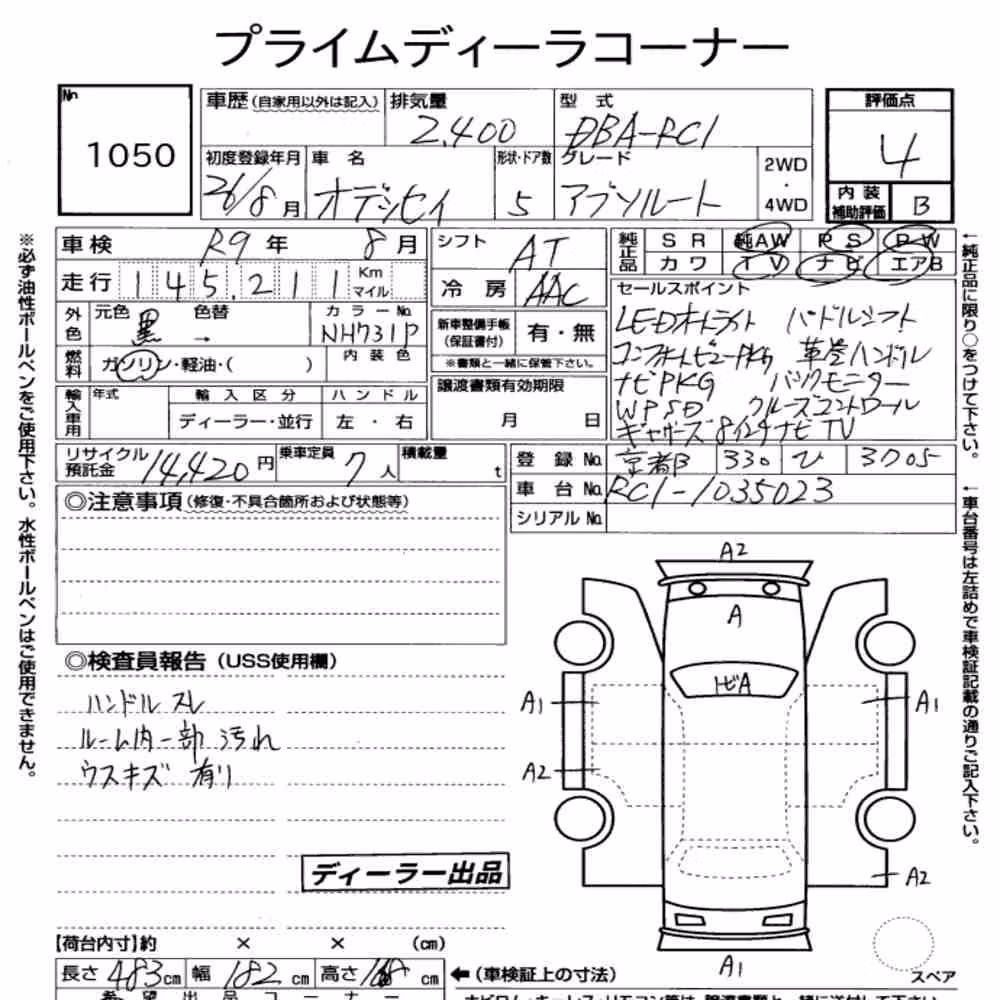 プライムディーラコーナー
No. 1050
車歴(自家用以外は記入) 排気量 2,400 型式 DBA-RC1 評価点 4
初度登録年月 26/8月 車名 オデッセイ 形状・ドア数 5 グレード アブソルート 2WD・4WD 内装補助評価 B
車検 R9年 8月 シフト AT 純正品 SR 純AW PS PW
カワ TV ナビ エアB
走行 145,211 Km マイル 冷房 AAC
外色 元色 黒 色替 → カラーNo. NH731P
新車整備手帳(保証書付) 有・無
※書類と一緒に保管下さい。
燃料 ガソリン・軽油・( ) 内装色
セールスポイント
LEDオートライト パドルシフト
コンフォートビューPKG 革巻ハンドル
ナビPKG バックモニター
WPSD クルーズコントロール
ギャザーズ8インチナビTV
輸入車用 年式 輸入区分 ハンドル
ディーラー・並行 左・右
譲渡書類有効期限
月 日
リサイクル預託金 14,420円 乗車定員 7人 積載量 t
登録No. 京都 330 ひ 3705
車台No. RC1-1035023
シリアルNo.
◎注意事項(修復・不具合箇所および状態等)
◎検査員報告(USS使用欄)
ハンドル スレ
ルーム内一部 汚れ
ウスキズ 有り
ディーラー出品
A2
A
トビA
A1
A1
A2
A2
A1
スペア
【荷台内寸】約 × × (cm)
長さ 483cm 幅 182cm 高さ cm ←(車検証上の寸法)
希望出品コーナー
※必ず油性ボールペンをご使用下さい。水性ボールペンはご使用できません。
←純正品に限り○をつけて下さい。
←車台番号は左詰めで車検証記載の通りご記入下さい。